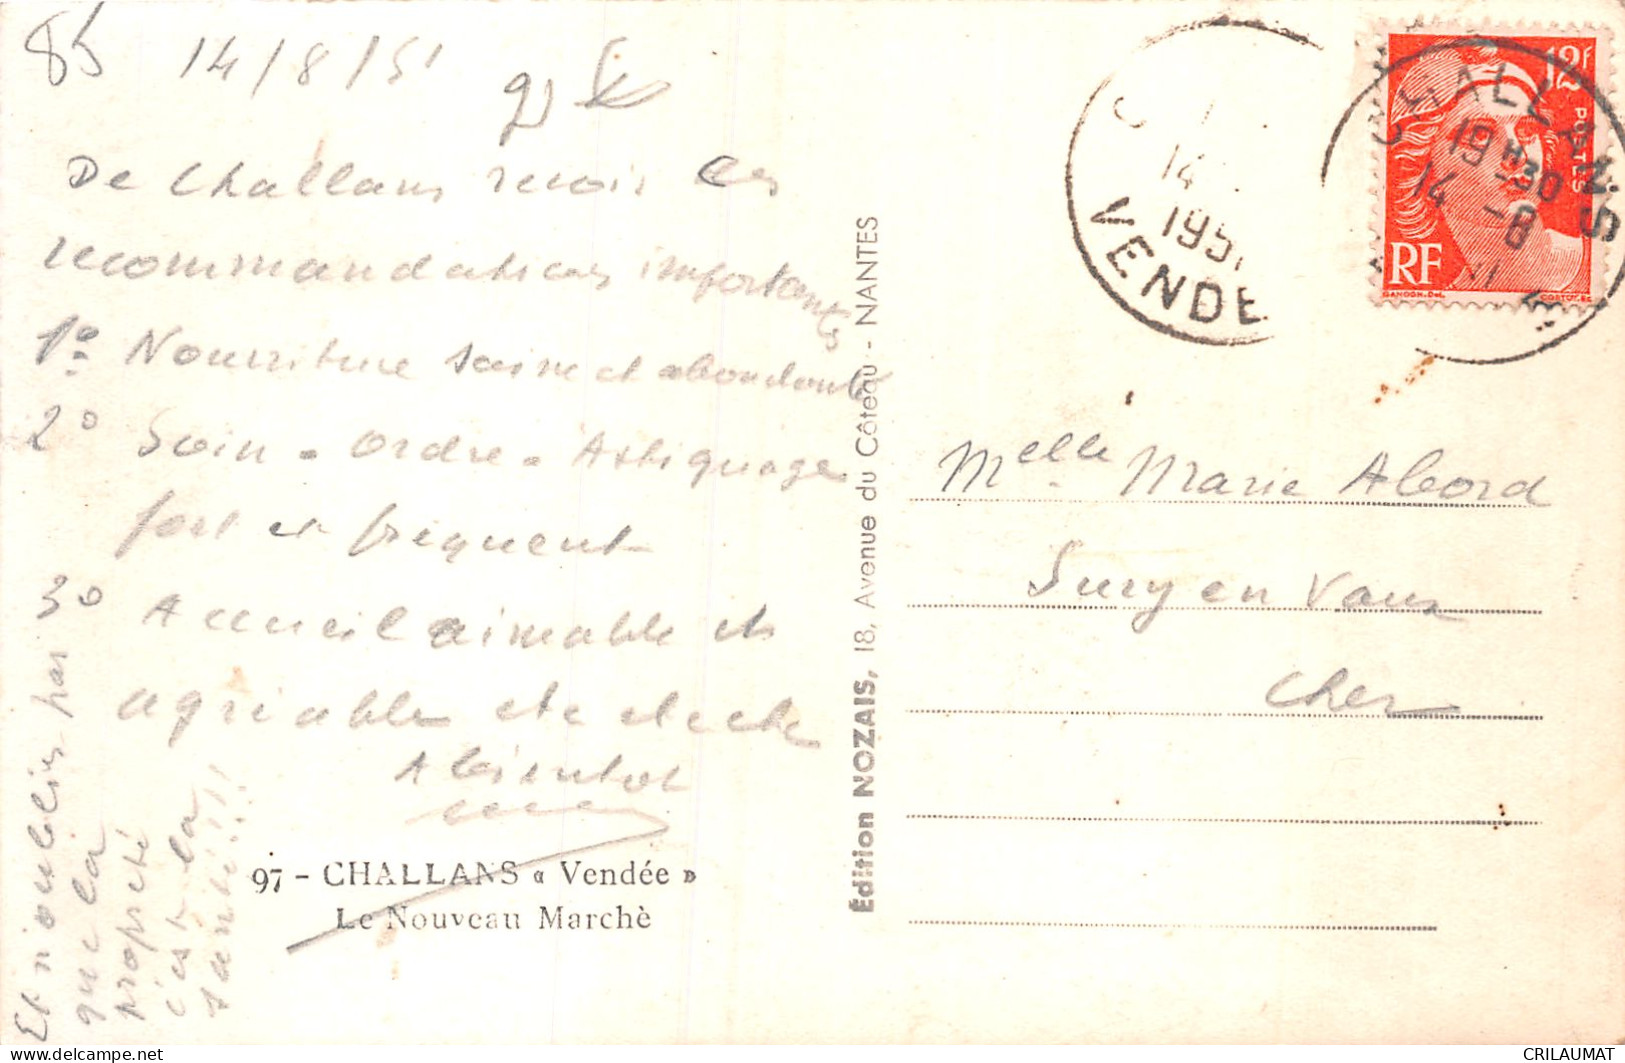 85
14/8/51
De Challans reçois ces
recommandations importantes
1º Nourriture saine et abondante
2º Soin - ordre - Astiquage
fort et fréquent
3º Accueil aimable et
agréable etc etc etc
A bientot
Et n'oublies pas
que la
propreté
c'est la
santé!!!
97 - CHALLANS « Vendée »
Le Nouveau Marchè
Édition NOZAIS, 18, Avenue du Côteau - NANTES
14
1951
VENDE
CHALLANS
19H30
14 -8
12F
POSTES
RF
GANDON. Del.
Melle Marie Abord
Sury en Vaux
Cher
CRILAUMAT